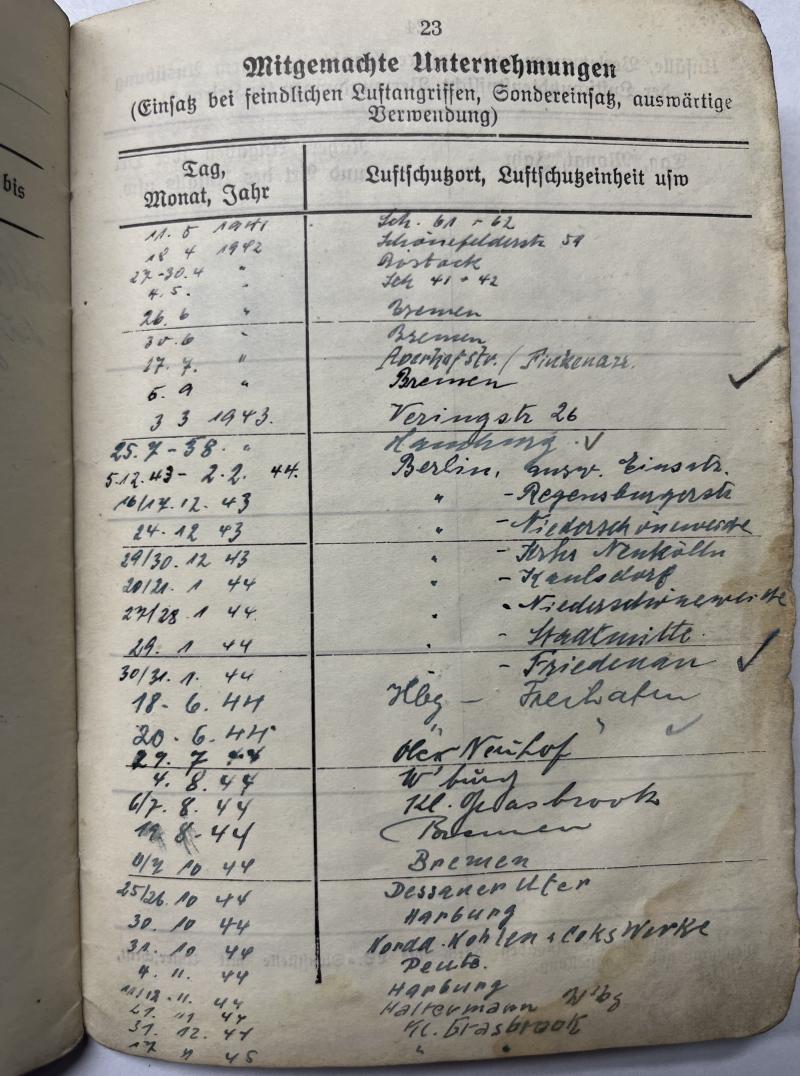 bis
23
Mitgemachte Unternehmungen
(Einsatz bei feindlichen Luftangriffen, Sondereinsatz, auswärtige
Verwendung)
Tag,
Monat, Jahr
Luftschutzort, Luftschutzeinheit usw
11. 5 1941 Sch. 61 + 62
18 4 1942 Schönefelderstr 59
27-30.4 " Rostock
4.5. " Sch 41 + 42
26. 6 " Bremen
30.6 " Bremen
17. 7. " Averhofstr. /
5. 9 " Bremen
3 3 1943. Veringstr 26
25.7-38. " Hamburg
5.12.43- 2.2. 44. Berlin, ausw. Einsatz.
16/17.12. 43 " -Regensburgerstr
24. 12 43 " -Niederschöneweide
29/30. 12 43 " - Krhs Neukölln
20/21. 1 44 " -Kaulsdorf
27/28 1 44. " -Niederschöneweide
29. 1 44 " - Stadtmitte.
30/31. 1. 44 - Friedenau
18- 6. 44 Hbg - Freihafen
20. 6. 44 " "
29. 7 44 Neuhof
4. 8. 44 W'burg
6/7. 8. 44 Kl. Grasbrook
8-44 Bremen
10 44 Bremen
25/26. 10 44 Dessauer Ufer
30. 10 44 Harburg
31. 10 44 Nordd. Kohlen & Coks Werke
4. 11. 44 Peute.
11/12. 11. 44 Harburg
21. 11 44 Haltermann W'bg
31. 12. 44 Kl. Grasbrook
17 45 " "